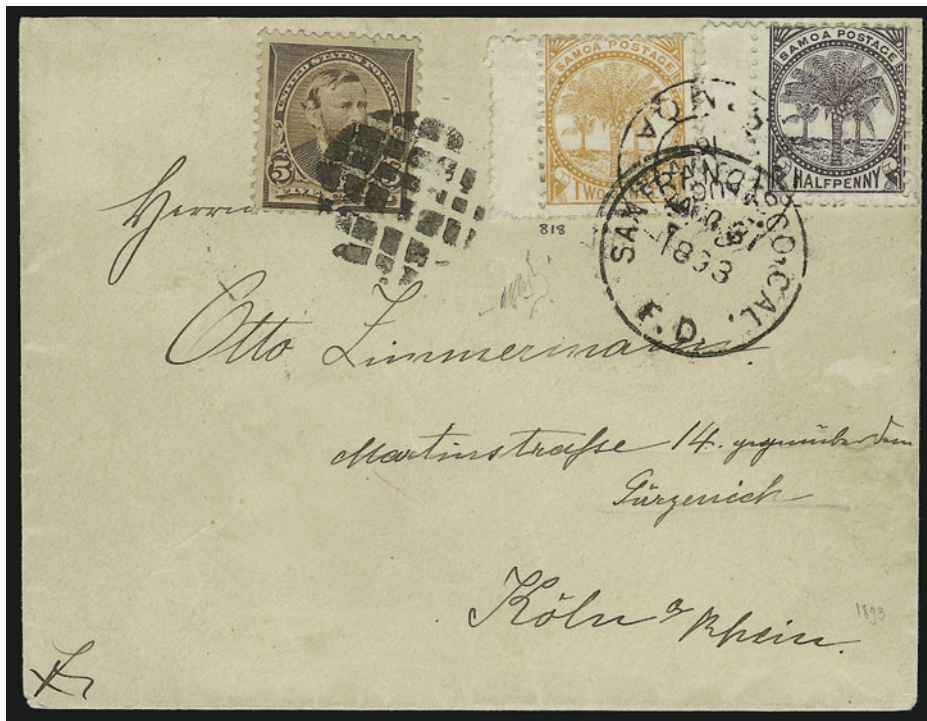 UNITED STATES POSTAGE
5
SAMOA POSTAGE
TWO
SAMOA POSTAGE
HALFPENNY
SAN FRANCISCO, CAL.
1893
F.D.
818
Herrn
Otto Zimmermann
Martinstraße 14. gegenüber dem
Gürzenich
Köln a/ Rhein.
1893